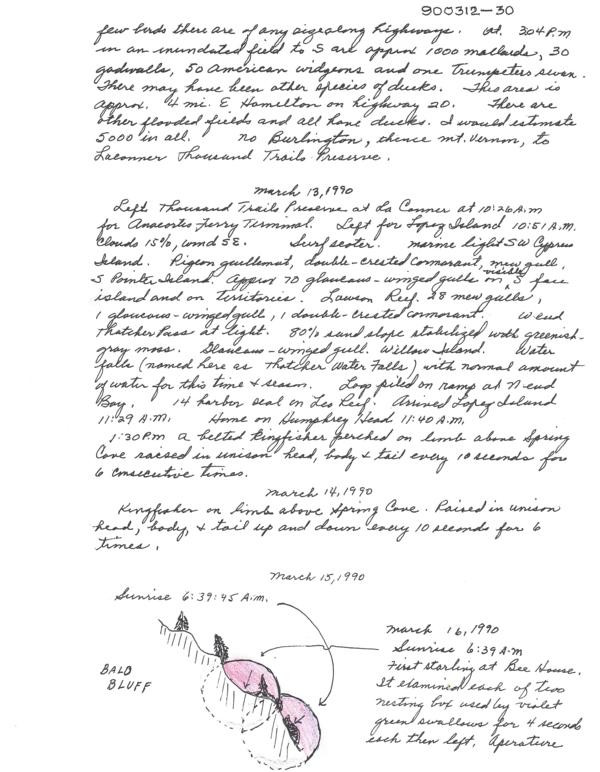 900312-30
few birds there are of any size along highways. At. 3:04 P.M
in an inundated field to S are approx 1000 mallards, 30
gadwalls, 50 American widgeons and one Trumpeters swan.
There may have been other species of ducks. This area is
approx. 4 mi. E Hamilton on highway 20. There are
other flooded fields and all have ducks. I would estimate
5000 in all. No Burlington, thence Mt. Vernon, to
Laconner Thousand Trails Preserve.
March 13, 1990
Left Thousand Trails Preserve at La Conner at 10:26 A.M
for Anacortes Ferry Terminal. Left for Lopez Island 10:51 A.M.
Clouds 15%, wind SE. Surf scoter. marine light SW Cypress
Island. Pigeon guillemot, double-crested cormorant, mew gull,
S Pointer Island. Approx 70 glaucous-winged gulls visible on S face
island and on territories. Lawson Reef. 28 mew gulls,
1 glaucous-winged gull, 1 double-crested cormorant. W end
Thatcher Pass at light. 80% sand slope stabilized with greenish-
gray moss. Glaucous-winged gull. Willow Island. Water
falls (named here as Thatcher Water Falls) with normal amount
of water for this time & season. Logs piled on ramp at N end
Bay. 14 harbor seal on Leo Reef. Arrived Lopez Island
11:29 A.M. Home on Humphrey Head 11:40 A.M.
1:30 P.M a belted kingfisher perched on limb above Spring
Cove raised in unison head, body & tail every 10 seconds for
6 consecutive times.
March 14, 1990
Kingfisher on limb above Spring Cove. Raised in unison
head, body, & tail up and down every 10 seconds for 6
times.
March 15, 1990
Sunrise 6:39:45 A.M.
BALD
BLUFF
March 16, 1990
Sunrise 6:39 A.M
First starling at Bee House.
It examined each of two
nesting box used by violet
green swallows for 4 seconds
each then left. Aperature